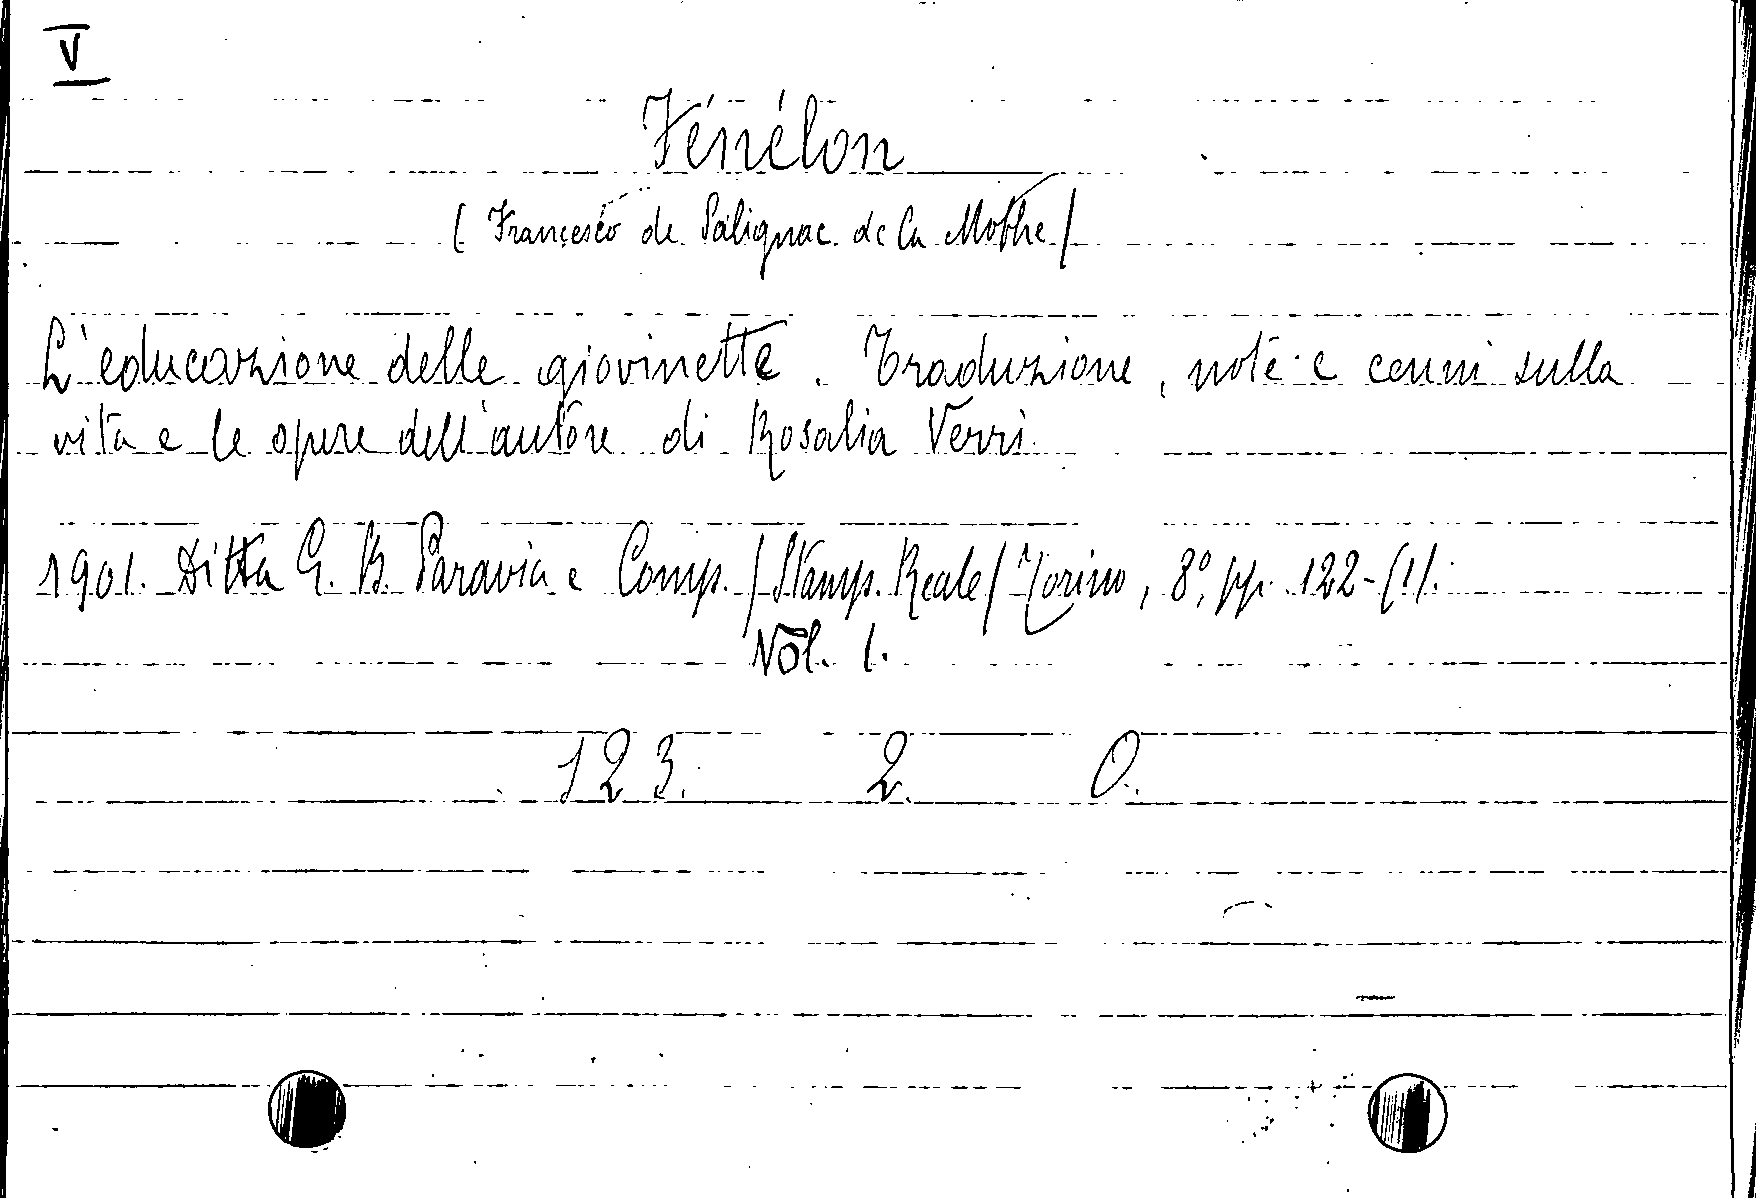 V
Fénélon
(Francesco de Salignac de la Mothe)
L'educazione delle giovinette. Traduzione, note e cenni sulla
vita e le opere dell'autore di Rosalia Verri.
1901. Ditta G. B. Paravia e Comp. (Stamp. Reale) Torino, 8°, pp. 122-(1).
Vol. 1.
123. 2. O.